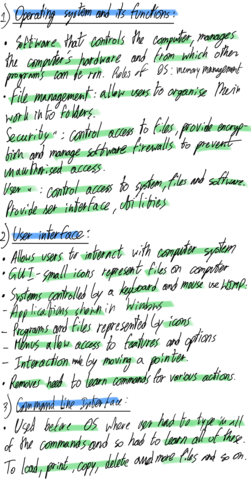 1) Operating system and its functions:
• Software that controls the computer, manages
the computer's hardware and from which other
programs can be run. Roles of OS: memory management
• File management: allow users to organise their
work into folders.
Security: control access to files, provide encryp-
tion and manage software firewalls to prevent
unauthorised access.
User: control access to system, files and software.
Provide user interface, utilities
2) User interface:
• Allows users to interact with computer system
• GUI - small icons represent files on computer
• Systems controlled by a keyboard and mouse use WIMP:
- Applications shown in Windows
- Programs and files represented by icons
- Menus allow access to features and options
- Interaction made by moving a pointer.
• Removes had to learn commands for various actions.
3) Command line interface:
• Used before OS where user had to type in all
of the commands and so had to learn all of these.
To load, print, copy, delete and more files and so on.